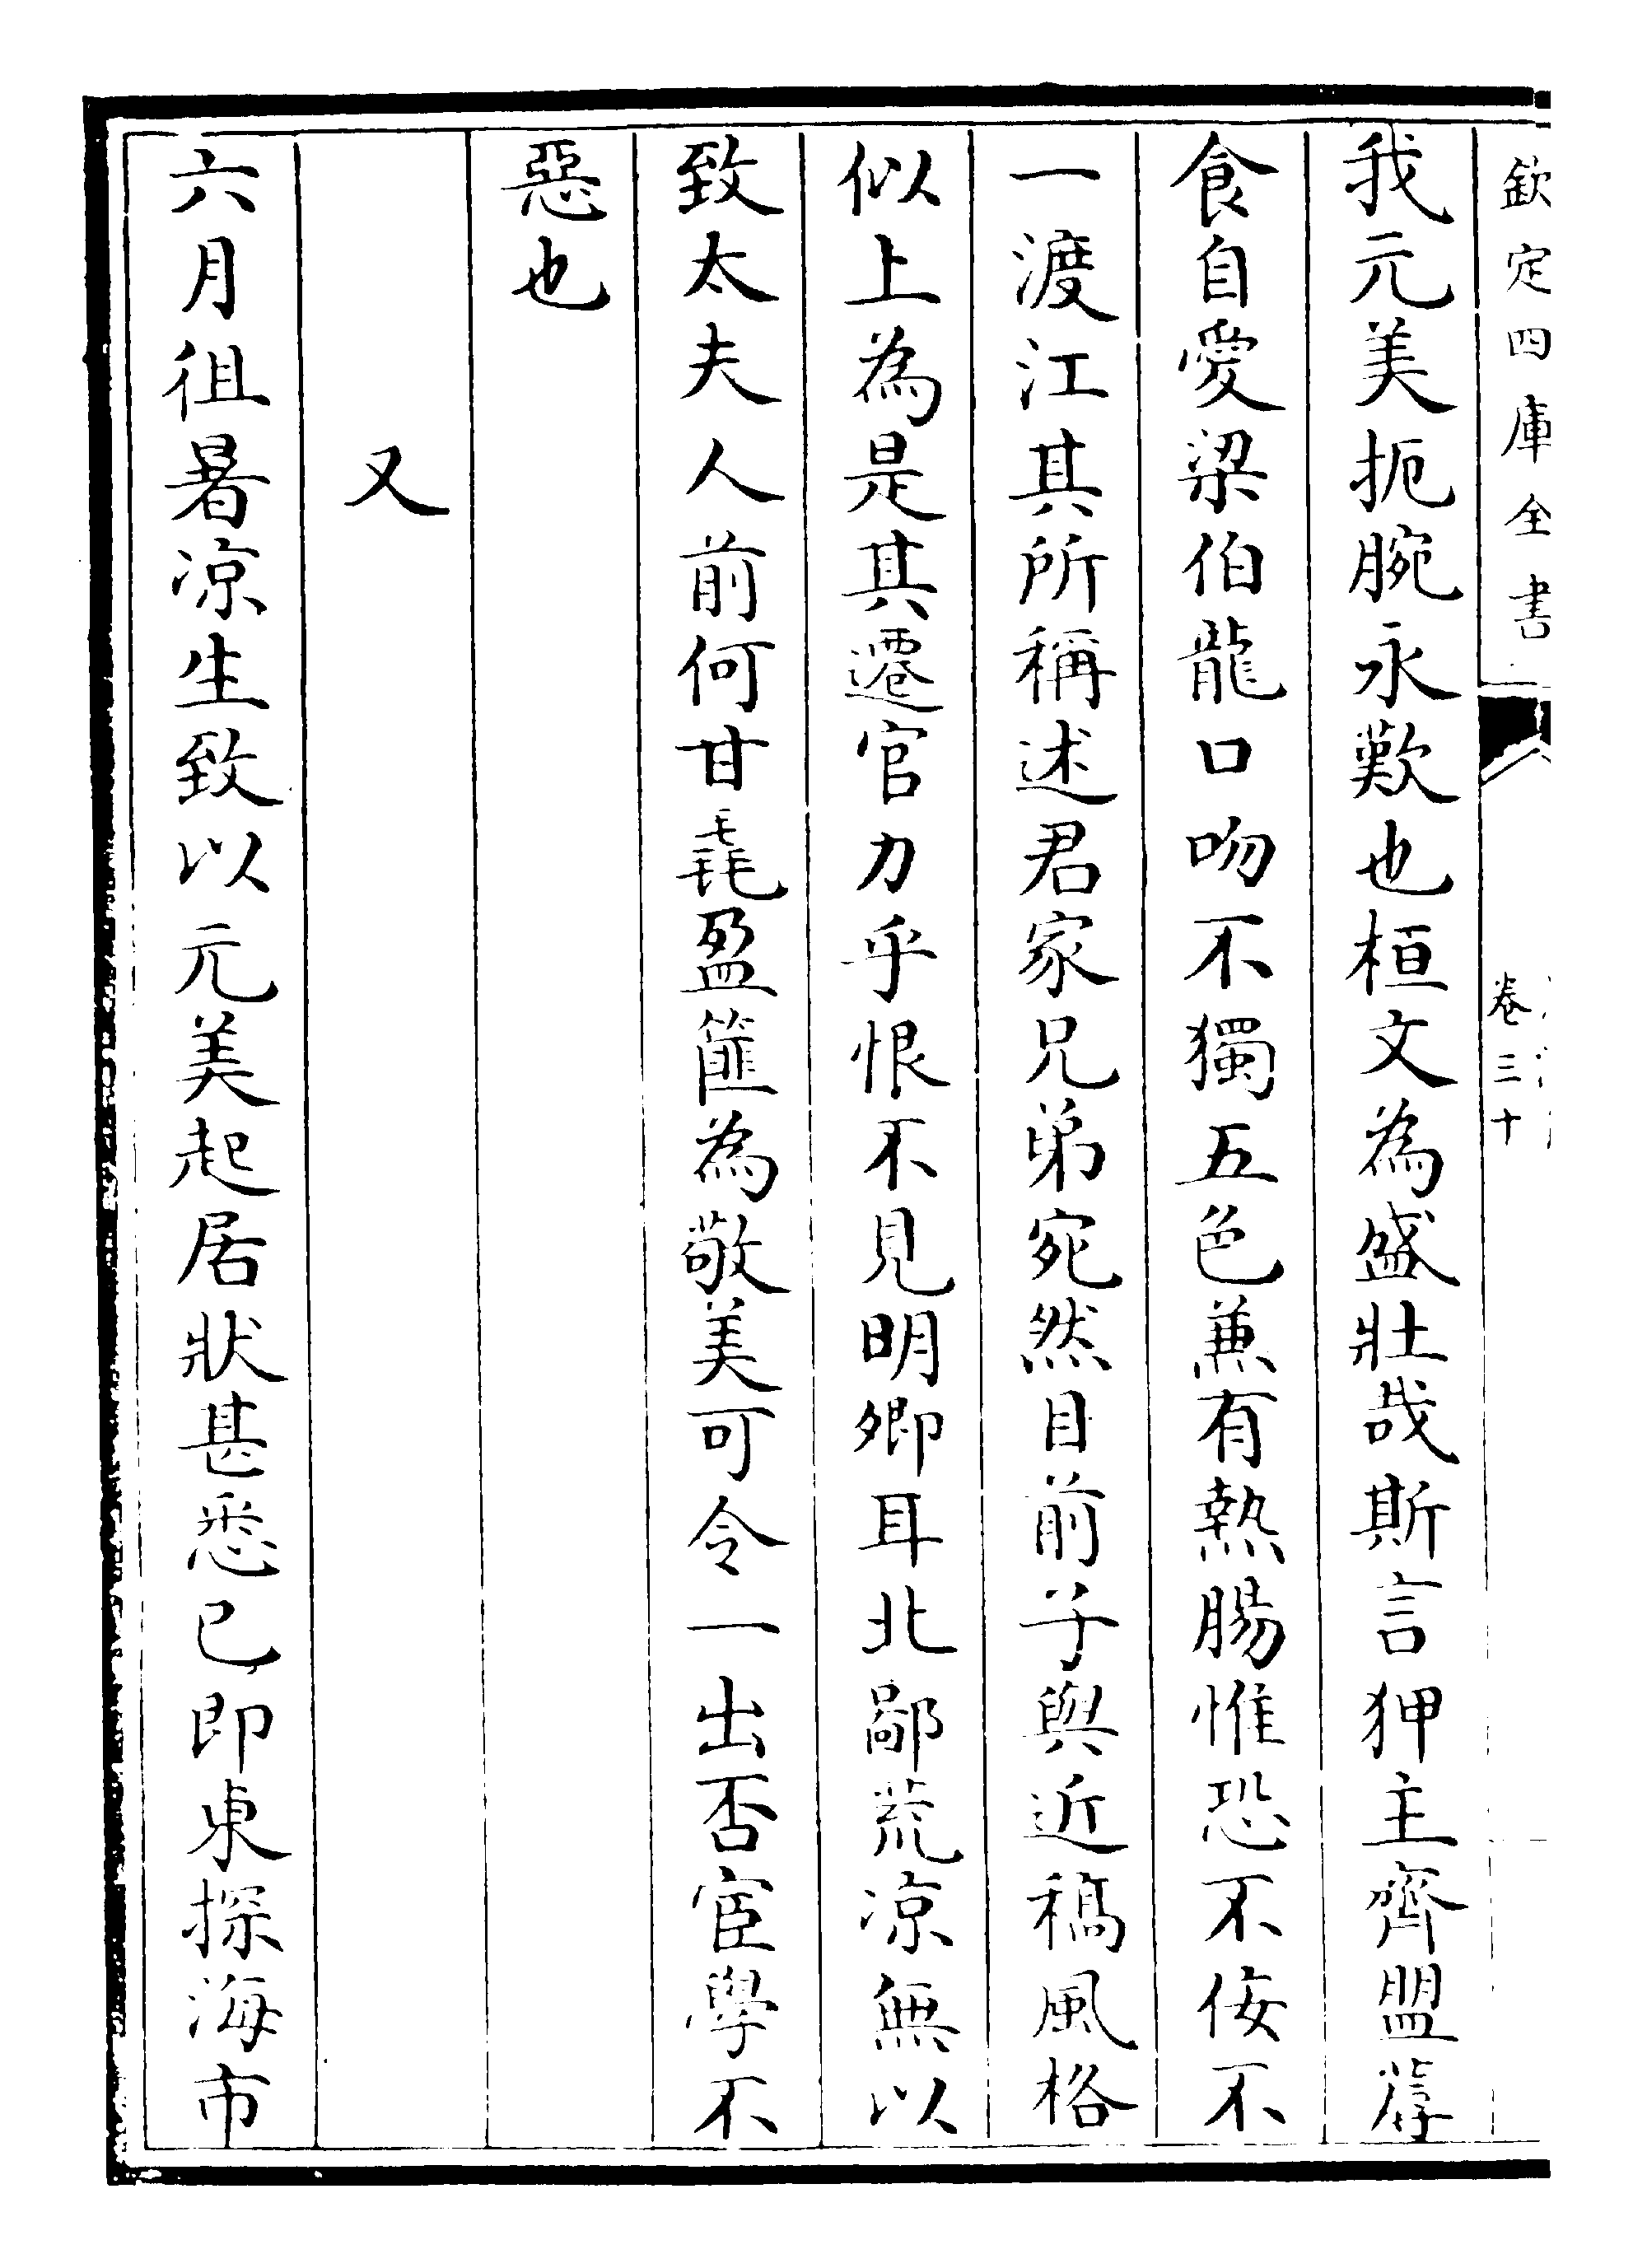 欽定四庫全書
卷三十
我元美扼腕永歎也桓文為盛壯哉斯言狎主齊盟蓐
食自愛梁伯龍口吻不獨五色兼有熱腸惟恐不佞不
一渡江其所稱述君家兄弟宛然目前子與近稿風格
似上為是其遷官力乎恨不見明卿耳北鄙荒涼無以
致太夫人前何甘毳盈篚為敬美可令一出否宦學不
惡也
又
六月徂暑涼生致以元美起居狀甚悉已即東探海市